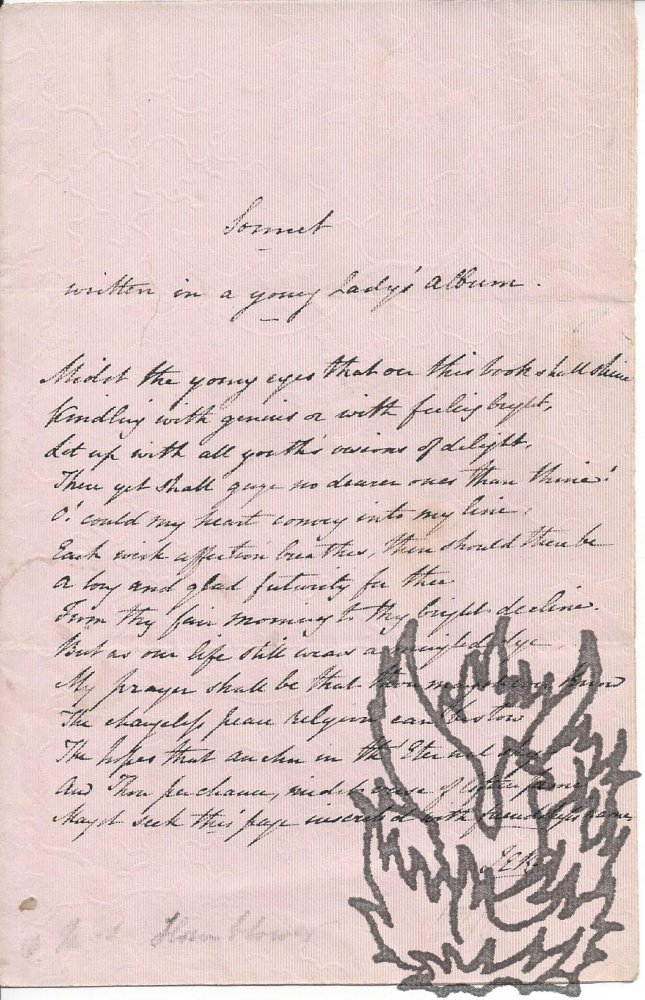 Sonnet
written in a young Lady's album.
Midst the young eyes that oer this book shall shine
Kindling with genius or with feeling bright,
Let up with all youth's visions of delight,
There yet shall gaze no dearer ones than thine!
O! could my heart convey into my line,
Each wish affection breathes, then should there be
a long and glad futurity for thee
From thy fair morning to thy bright decline.
But as our life still wears a mingled dye
My prayer shall be that thou mayst know
The changeless peace religion can bestow
The hopes that anchor in the Eternal
And Thou perchance, midst some of
Mayst seek this page inscribed with friendship's name